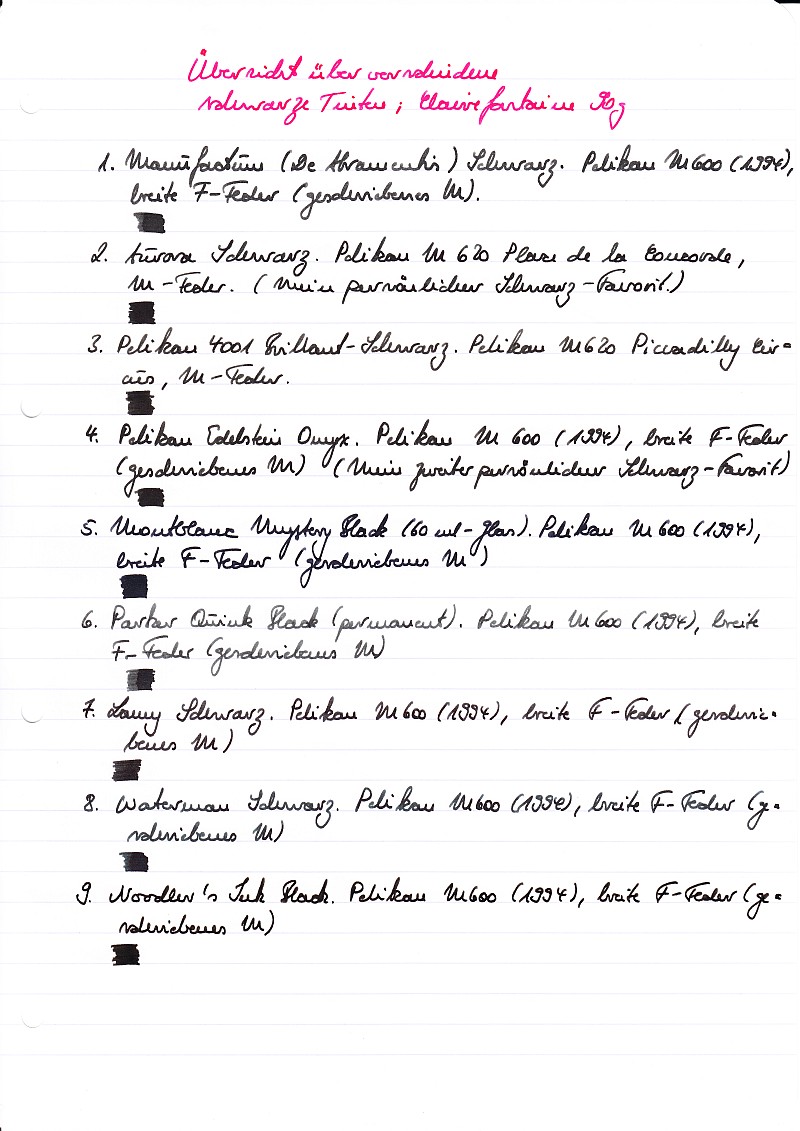 Übersicht über verschiedene
schwarze Tinten; Clairefontaine 90g
1. Manufactum (De Atramentis) Schwarz. Pelikan M600 (1994),
breite F-Feder (geschriebenes M).
2. Aurora Schwarz. Pelikan M 620 Place de la Concorde,
M-Feder. (Mein persönlicher Schwarz-Favorit.)
3. Pelikan 4001 Brillant-Schwarz. Pelikan M620 Piccadilly Cir-
cus, M-Feder.
4. Pelikan Edelstein Onyx. Pelikan M 600 (1994), breite F-Feder
(geschriebenes M) (Mein zweiter persönlicher Schwarz-Favorit)
5. Montblanc Mystery Black (60 ml-Glas). Pelikan M600 (1994),
breite F-Feder (geschriebenes M)
6. Parker Quink Black (permanent). Pelikan M600 (1994), breite
F-Feder (geschriebenes M)
7. Lamy Schwarz. Pelikan M600 (1994), breite F-Feder (geschrie-
benes M)
8. Waterman Schwarz. Pelikan M600 (1994), breite F-Feder (ge-
schriebenes M)
9. Noodler's Ink Black. Pelikan M600 (1994), breite F-Feder (ge-
schriebenes M)